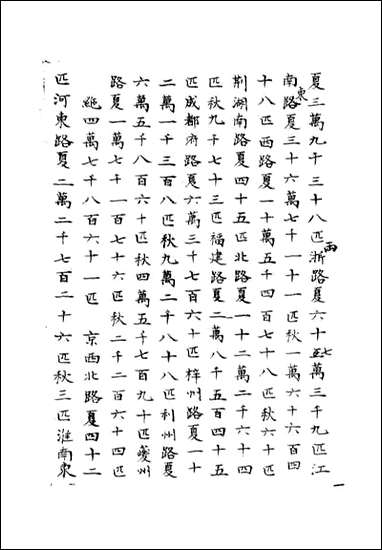 夏三萬九千三十八匹兩浙路夏六十七萬三千九匹江
南東路夏三十六萬七千一十一匹秋一萬六千六百四
十八匹西路夏一十萬五千四百七十八匹秋六十匹
荆湖南路夏四十五匹北路夏一十二萬二千六十四
匹秋九千七十三匹福建路夏二萬八千五百四十五
匹成都府路夏六萬三千七百六十匹梓州路夏一十
二萬一千三百八匹秋九萬二千八十八匹利州路夏
六萬五千八百六十匹秋四萬五千七百九十匹夔州
路夏一萬七千一百七十六匹秋二千二百六十四匹
絁四萬七千八百六十一匹 京西北路夏四十二
匹河東路夏二萬二千七百二十六匹秋三匹淮南東